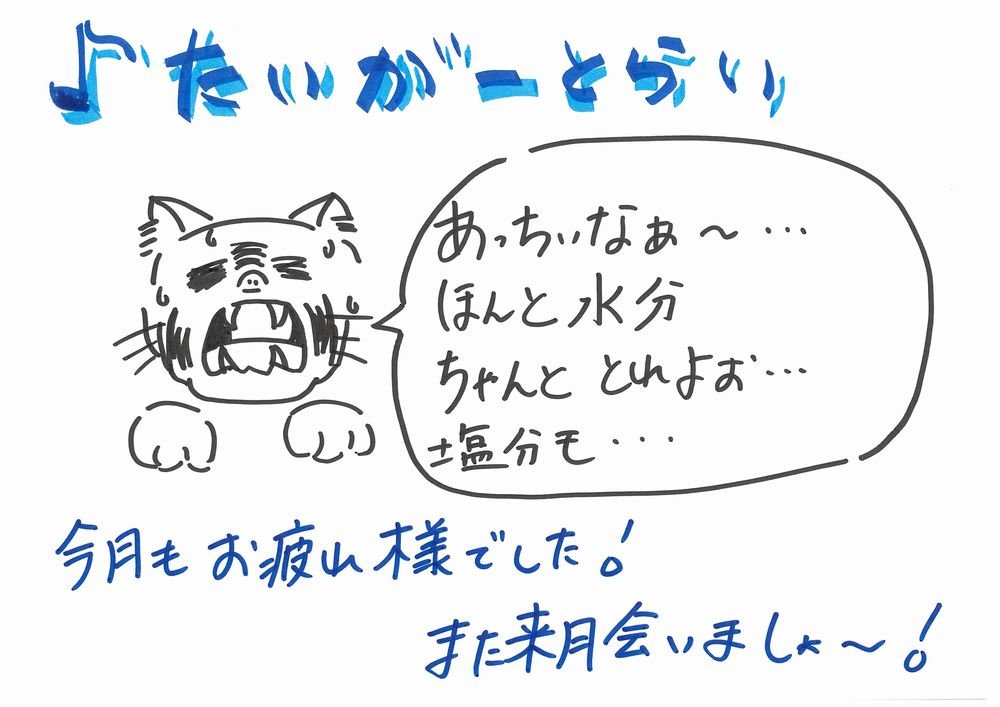 ♪たいがーとらい
あっちぃなぁ～…
ほんと水分
ちゃんと とれよぉ…
塩分も…
今月もお疲れ様でした！
また来月会いましょ～！